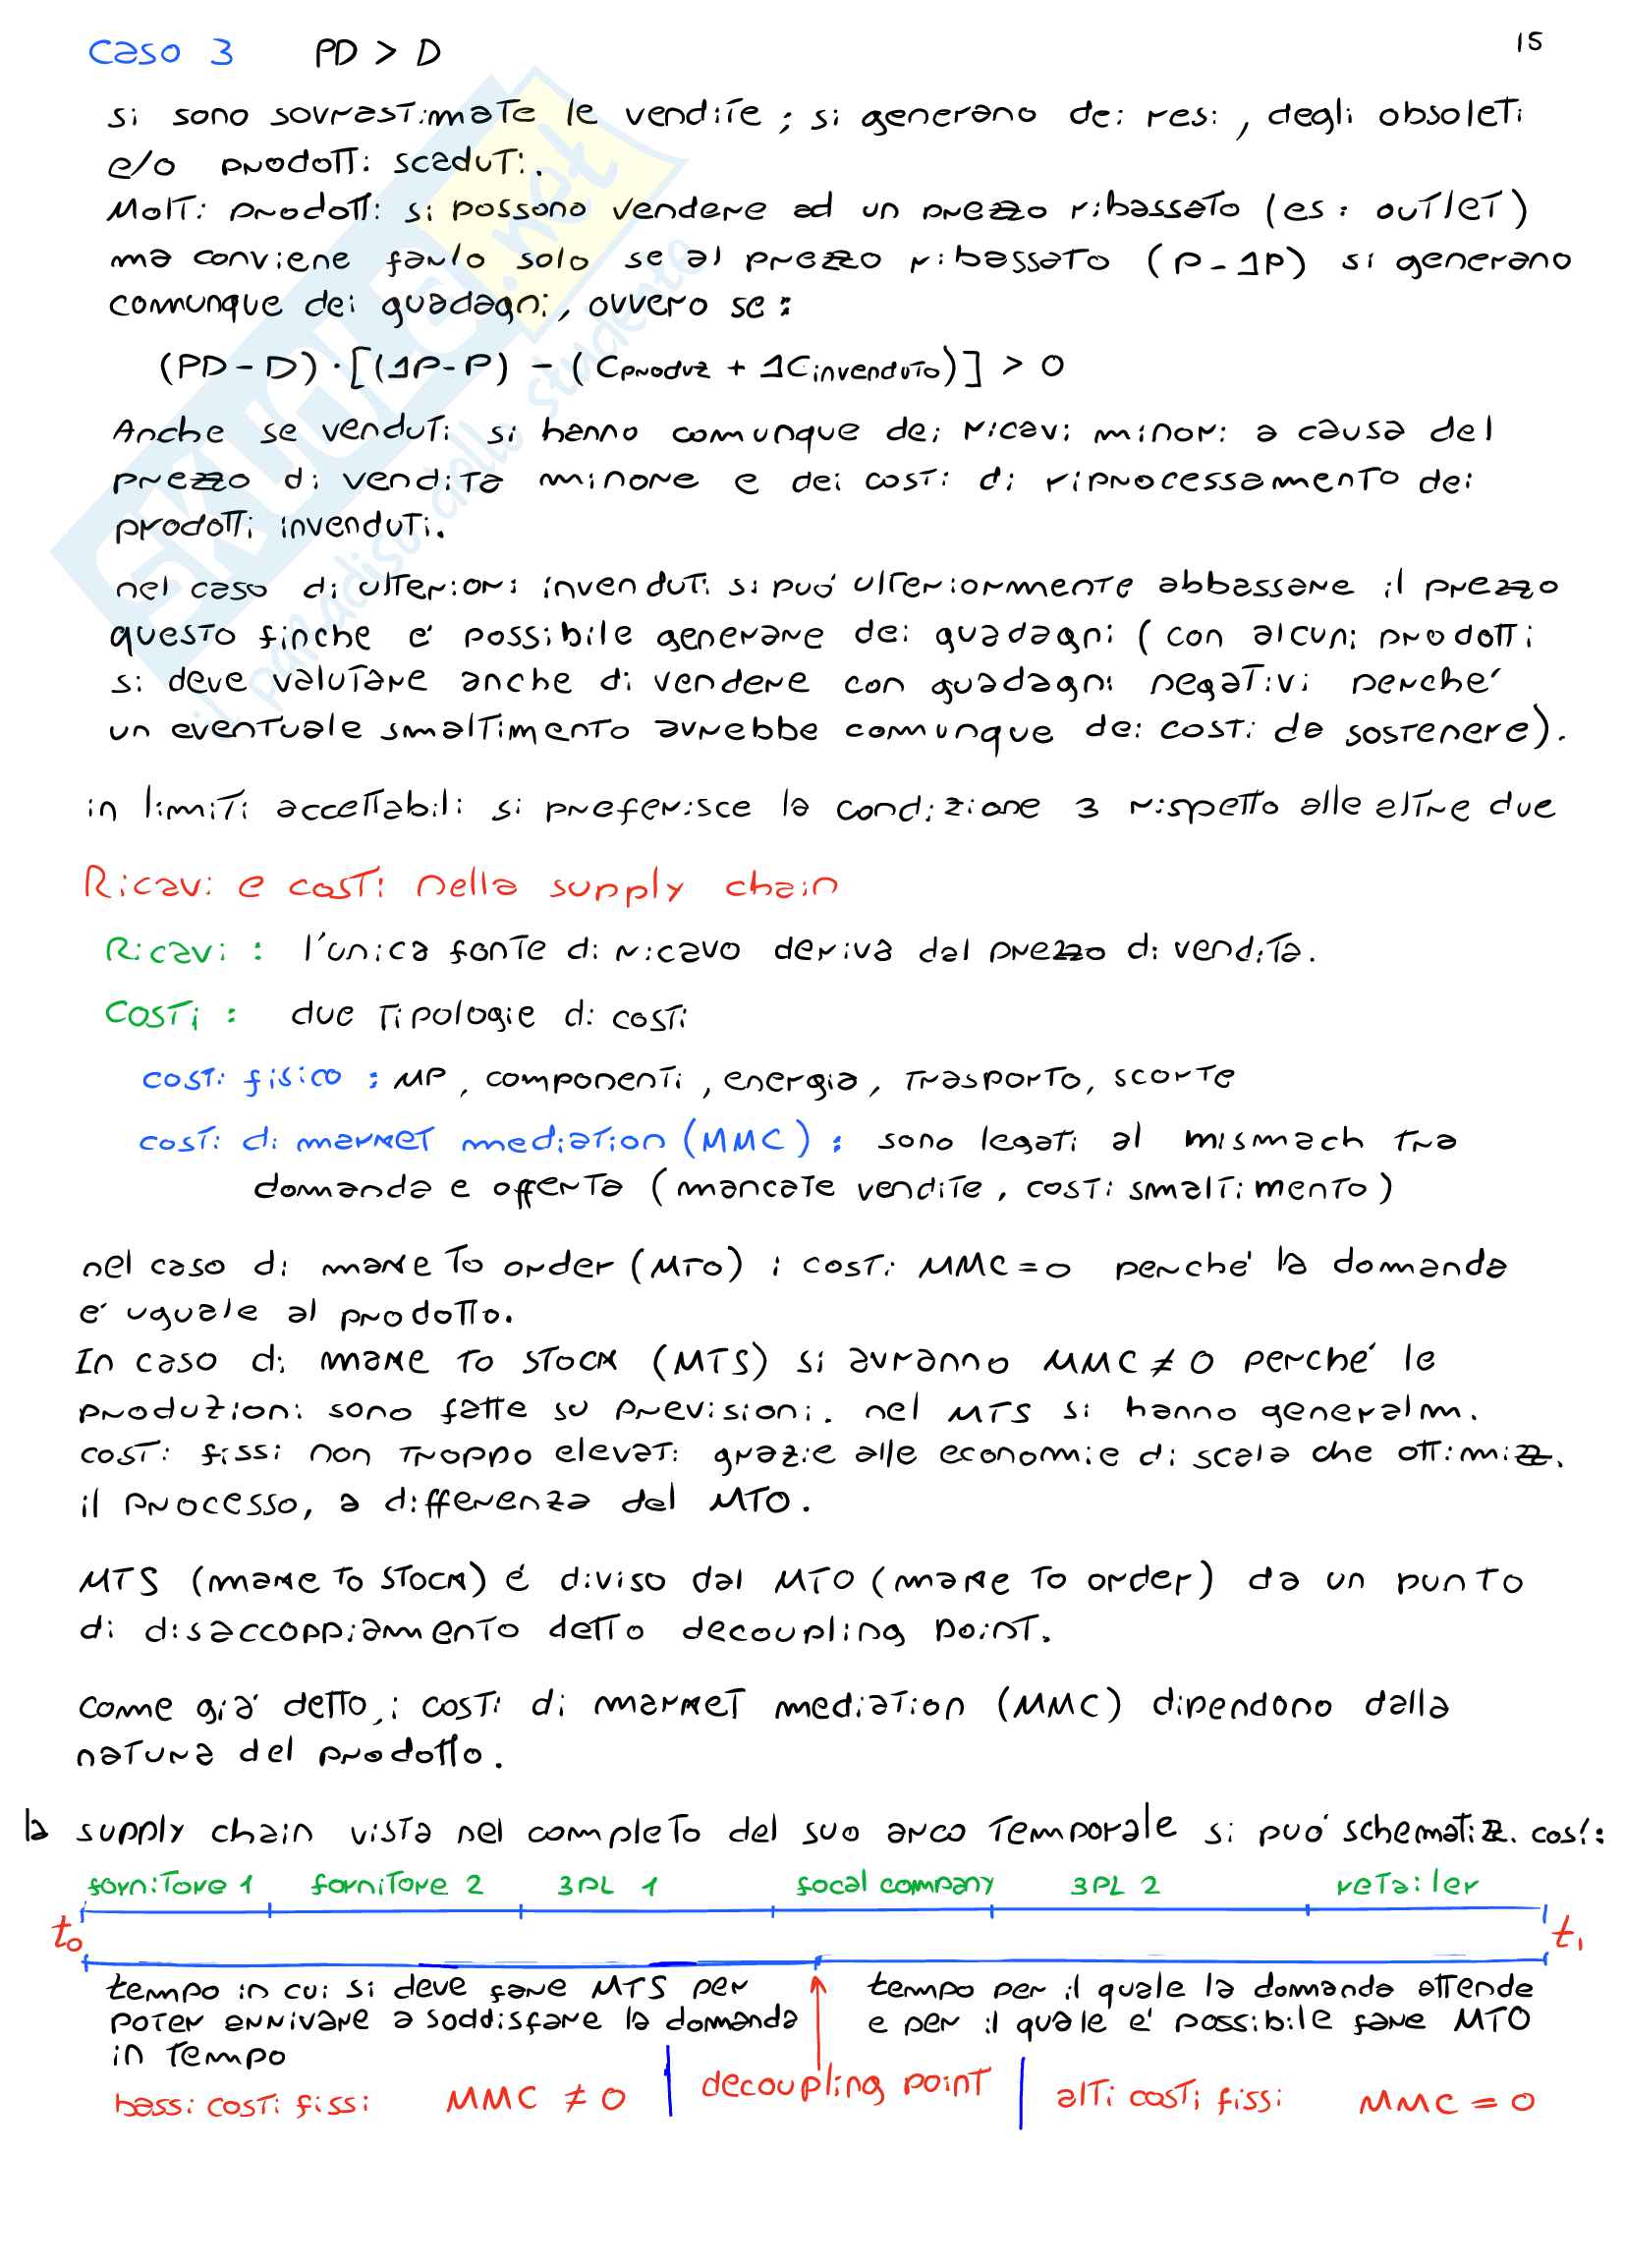 caso 3 PD > D
15
si sono sovrastimate le vendite ; si generano dei resi , degli obsoleti
e/o prodotti scaduti.
Molti prodotti si possono vendere ad un prezzo ribassato (es: outlet)
ma conviene farlo solo se al prezzo ribassato (P-1P) si generano
comunque dei guadagni, ovvero se:
(PD-D)·[(1P-P) - (Cproduz + 1Cinvenduto)] > 0
Anche se venduti si hanno comunque dei ricavi minori a causa del
prezzo di vendita minore e dei costi di riprocessamento dei
prodotti invenduti.
nel caso di ulteriori invenduti si puó ulteriormente abbassare il prezzo
questo finche e' possibile generare dei guadagni (con alcuni prodotti
si deve valutare anche di vendere con guadagni negativi perche'
un eventuale smaltimento avrebbe comunque dei costi da sostenere).
in limiti accettabili si preferisce la condizione 3 rispetto alle altre due
Ricavi e costi nella supply chain
Ricavi : l'unica fonte di ricavo deriva dal prezzo di vendita.
Costi : due tipologie di costi
costi fisico : MP, componenti, energia, trasporto, scorte
costi di market mediation (MMC) : sono legati al mismach tra
domanda e offerta (mancate vendite, costi smaltimento)
nel caso di make to order (MTO) i costi MMC=0 perche' la domanda
e' uguale al prodotto.
In caso di make to stock (MTS) si avranno MMC ≠ 0 perche' le
produzioni sono fatte su previsioni. nel MTS si hanno generalm.
costi fissi non troppo elevati grazie alle economie di scala che ottimizz.
il processo, a differenza del MTO.
MTS (make to stock) é diviso dal MTO (make to order) da un punto
di disaccoppiamento detto decoupling point.
come gia' detto, i costi di market mediation (MMC) dipendono dalla
natura del prodotto.
la supply chain vista nel completo del suo arco temporale si puo' schematizz. cosí:
fornitore 1 fornitore 2 3PL 1 focal company 3PL 2 retailer
t0 t1
tempo in cui si deve fare MTS per
poter arrivare a soddisfare la domanda
in tempo
tempo per il quale la domanda attende
e per il quale e' possibile fare MTO
bassi costi fissi MMC ≠ 0 decoupling point alti costi fissi MMC = 0
SKUOLA.net
il paradiso dello studente